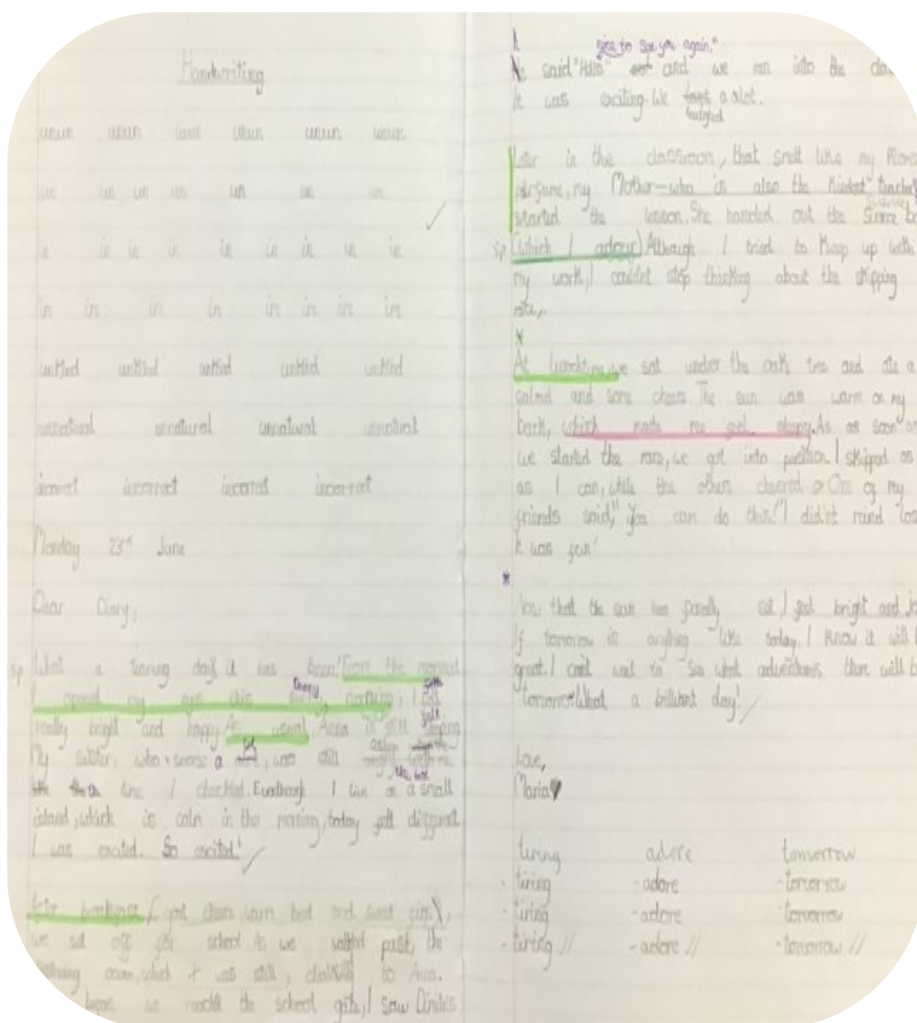 Handwriting
unun unun unun unun unun unun
un un un un un un in
in in in in in in in in in
in in in in in in in in
unkind unkind unkind unkind unkind
unnatural unnatural unnatural unnatural
incorrect incorrect incorrect incorrect
Monday 23rd June
Dear Diary,
sp What a tiring day it has been! From the moment
I opened my eyes this sunny morning, I felt
really bright and happy. As usual, Anna
My sister, who a , was still
time I checked. Eventhough I live on a small
island, which is calm in the morning, today felt different
I was excited. So excited!
After breakfast (
we set off for school As we walked past the
ocean, which was still, to Ava.
we the school gate, I saw
nice to see you again."
He said "Hello" and we ran into the
It was exciting. We laughed a lot.
Later in the classroom, that smelt like my
perfume, my Mother-who is also the kindest teacher
started the lesson. She handed out the Science
sp (which I adour) Although I tried to keep up with
my work, I couldnt stop thinking about the skipping
At lunchtime, we sat under the oak tree and ate a
salad and some The sun was warm on my
back, which made me feel sleepy. As as soon as
we started the race, we got into position. I skipped as
as I can, while the others cheered One of my
friends said, "You can do this!" I didn't mind
It was fun!
Now that the sun has finally set, I feel bright and
If tomorrow is anything like today, I know it will
great. I cant wait to see what adventures there will
tomorrow What a brilliant day!
Love,
Maria
tiring adore tomorrow
- tiring - adore - tomorrow
- tiring - adore - tomorrow
- tiring // - adore // - tomorrow //